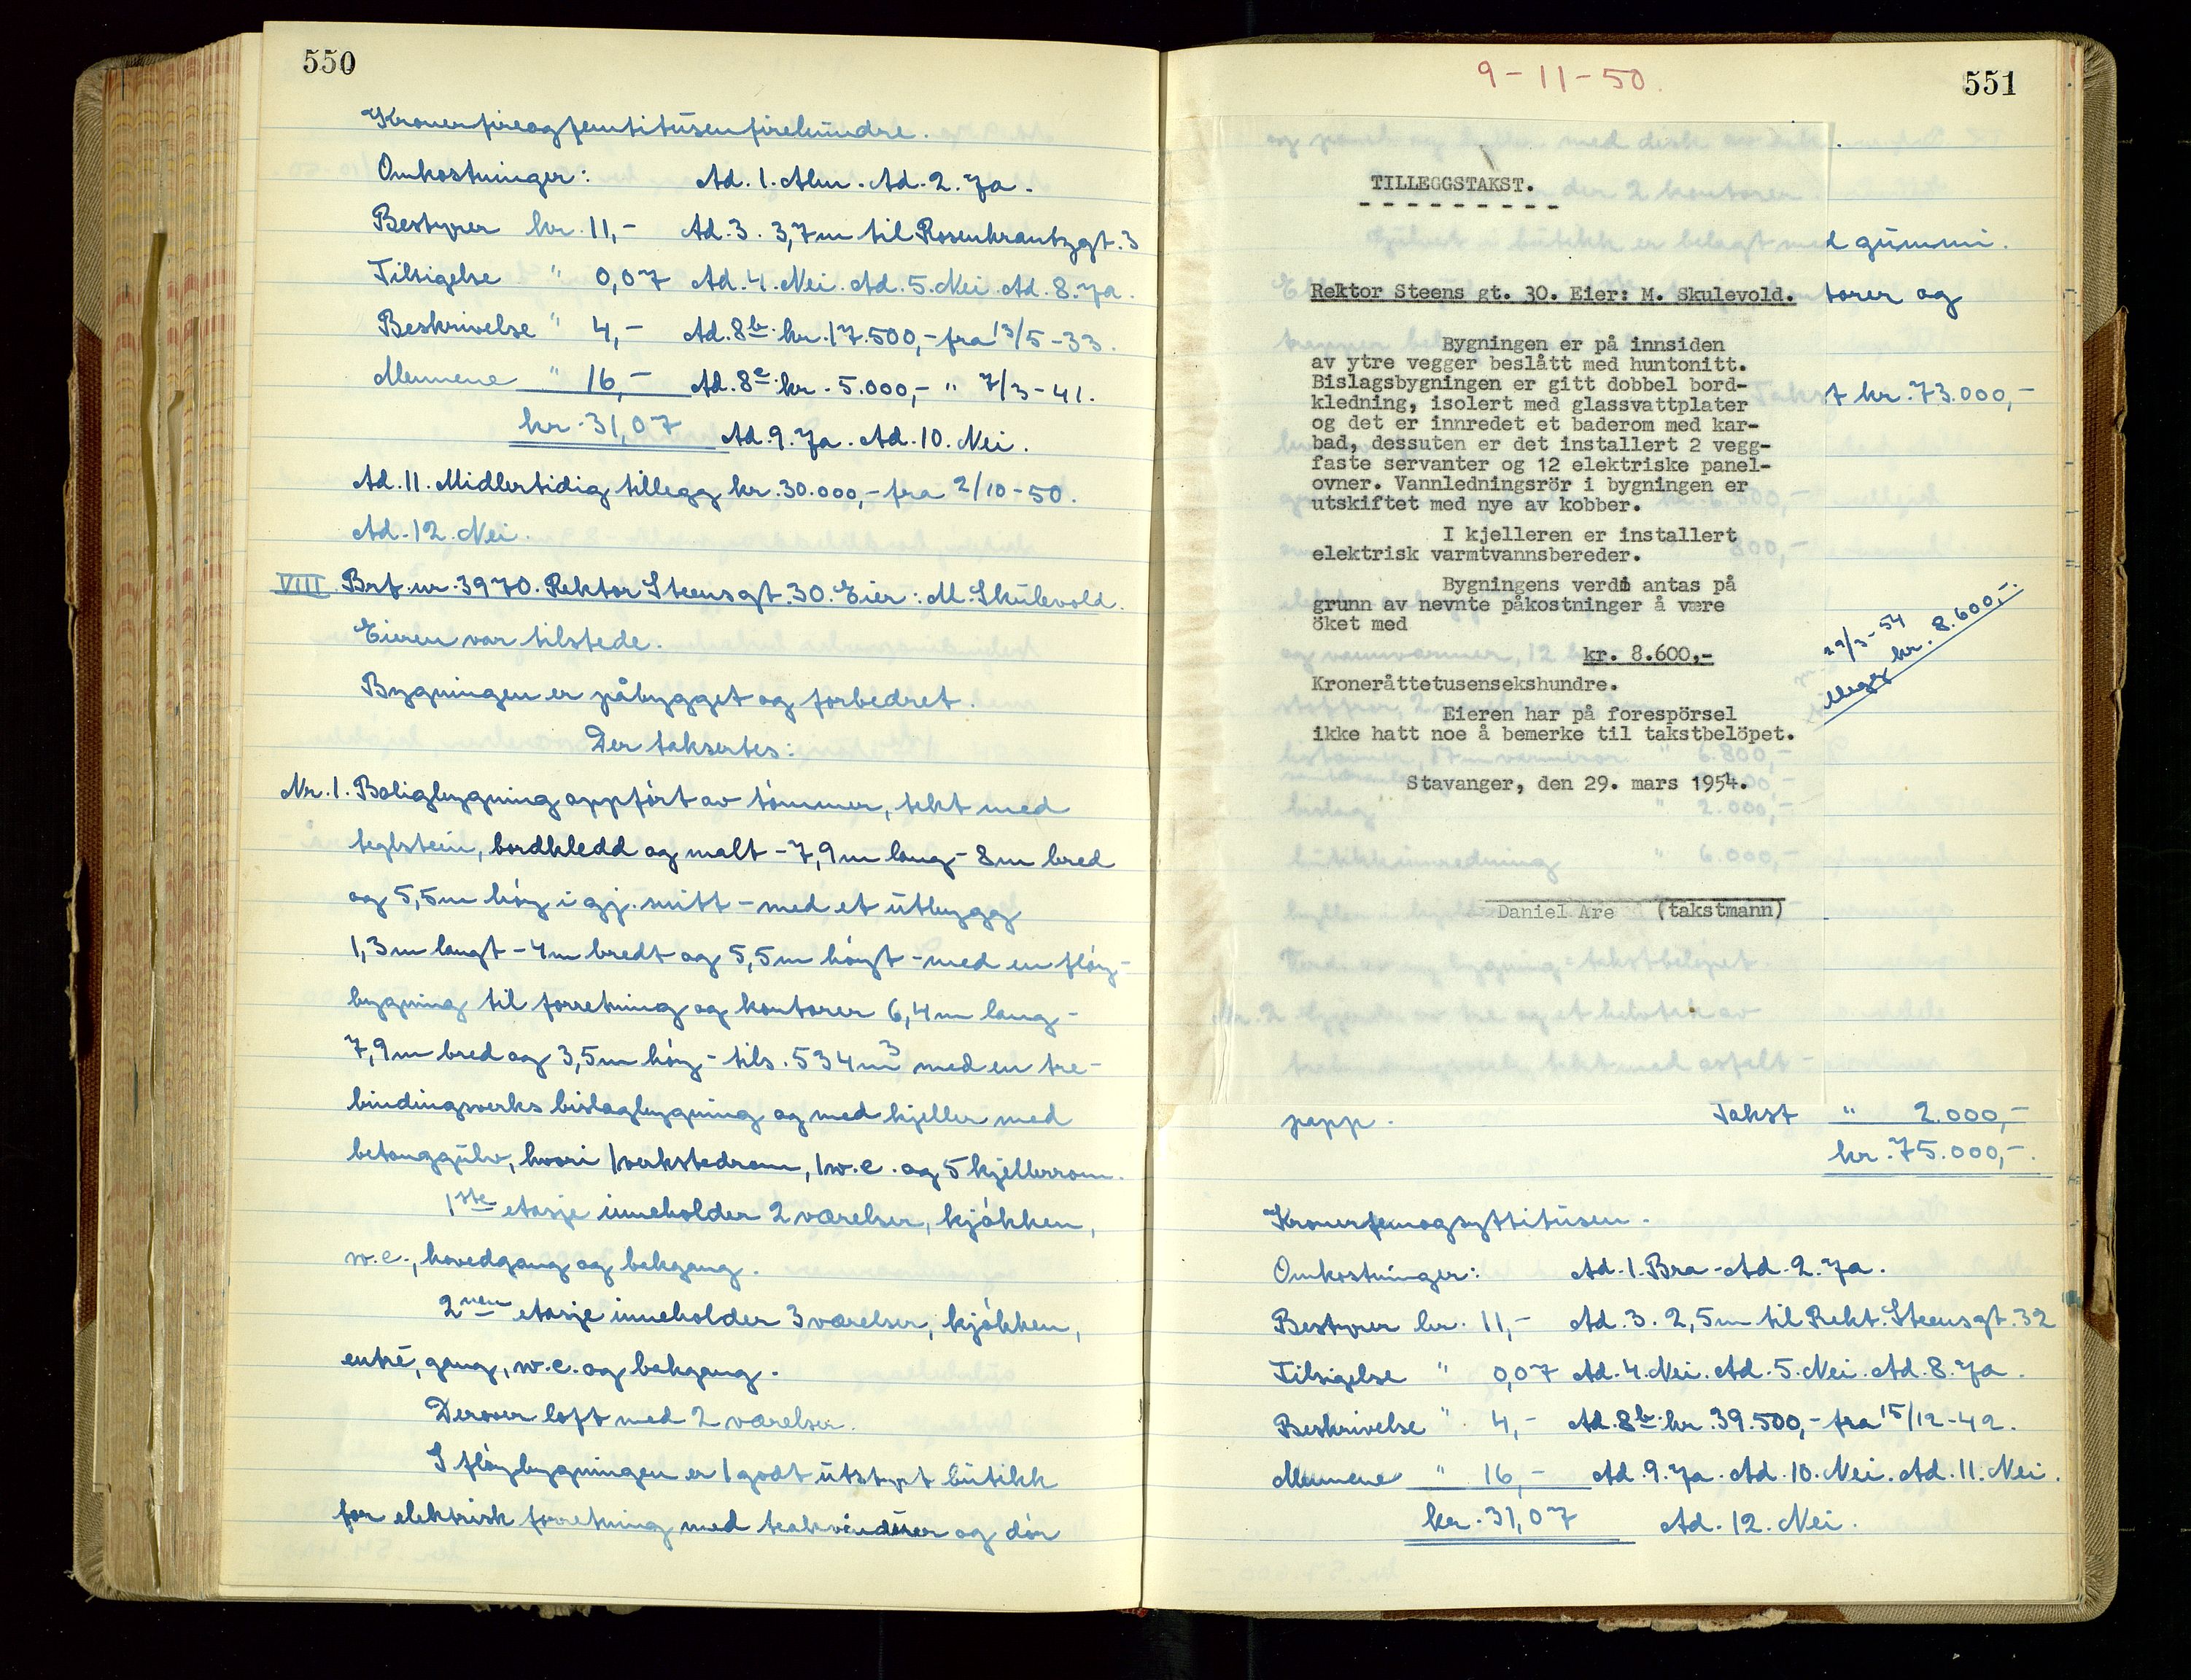 550
Kronerfireogfemtitusenfirehundre.
Omkostninger: Ad. 1. Alm. Ad. 2. Ja.
Bestyrer kr. 11,- Ad. 3. 3,7m til Rosenkrantzgt. 3
Tilsigelse " 0,07 Ad. 4. Nei. Ad. 5. Nei. Ad. 8. Ja.
Beskrivelse " 4,- Ad. 8b. kr. 17.500,- fra 13/5-33.
Mennene " 16,- Ad. 8c. kr. 5.000,- " 7/3-41.
kr. 31,07 Ad. 9. Ja. Ad. 10. Nei.
Ad. 11. Midlertidig tillegg kr. 30.000,- fra 2/10-50.
Ad. 12. Nei.
VIII Brf. nr. 3970. Rektor Steensgt. 30. Eier: M. Skulevold.
Eieren var tilstede.
Bygningen er påbygget og forbedret.
Der taksertes:
Nr. 1. Boligbygning oppført av tømmer, tekt med
teglstein, bordkledd og malt - 7,9m lang - 8m bred
og 5,5m høy i gj. snitt - med et utbygg
1,3m langt - 4m bredt og 5,5m høyt - med en fløy-
bygning til forretning og kontorer 6,4m lang -
7,9m bred og 3,5m høy - tils. 534m3 med en tre-
bindingsverks bislagbygning og med kjeller med
betonggulv, hvori 1 verkstedrom, 1 w.c. og 5 kjellerrom.
1ste etasje inneholder 2 værelser, kjøkken,
w.c., hovedgang og bakgang.
2nen etasje inneholder 3 værelser, kjøkken,
entré, gang, w.c. og bakgang.
Derover loft med 2 værelser.
I fløybygningen er 1 godt utstyrt butikk
for elektrisk forretning med teakvinduer og dør
9-11-50.
551
TILLEGGSTAKST.
d gummi.
Rektor Steens gt. 30. Eier: M. Skulevold.
torer og
Bygningen er på innsiden
av ytre vegger beslått med huntonitt.
Bislagsbygningen er gitt dobbel bord-
t kr. 73.000,-
kledning, isolert med glassvattplater
og det er innredet et baderom med kar-
bad, dessuten er det installert 2 vegg-
faste servanter og 12 elektriske panel-
ovner. Vannledningsrör i bygningen er
utskiftet med nye av kobber.
I kjelleren er installert
elektrisk varmtvannsbereder.
Bygningens verdi antas på
grunn av nevnte påkostninger å være
öket med
kr. 8.600,-
29/3-54
illegg kr. 8.600,-
Kroneråttetusensekshundre.
Eieren har på forespörsel
ikke hatt noe å bemerke til takstbelöpet.
Stavanger, den 29. mars 1954.
Daniel Are (takstmann)
papp. Takst " 2.000,-
kr. 75.000,-
Kronerfemogsyttitusen.
Omkostninger: Ad. 1. Bra. Ad. 2. Ja.
Bestyrer kr. 11,- Ad. 3. 2,5m til Rekt. Steensgt. 32
Tilsigelse " 0,07 Ad. 4. Nei. Ad. 5. Nei. Ad. 8. Ja.
Beskrivelse " 4,- Ad. 8b. kr. 39.500,- fra 15/12-42.
Mennene " 16,- Ad. 9. Ja. Ad. 10. Nei. Ad. 11. Nei.
kr. 31,07 Ad. 12. Nei.